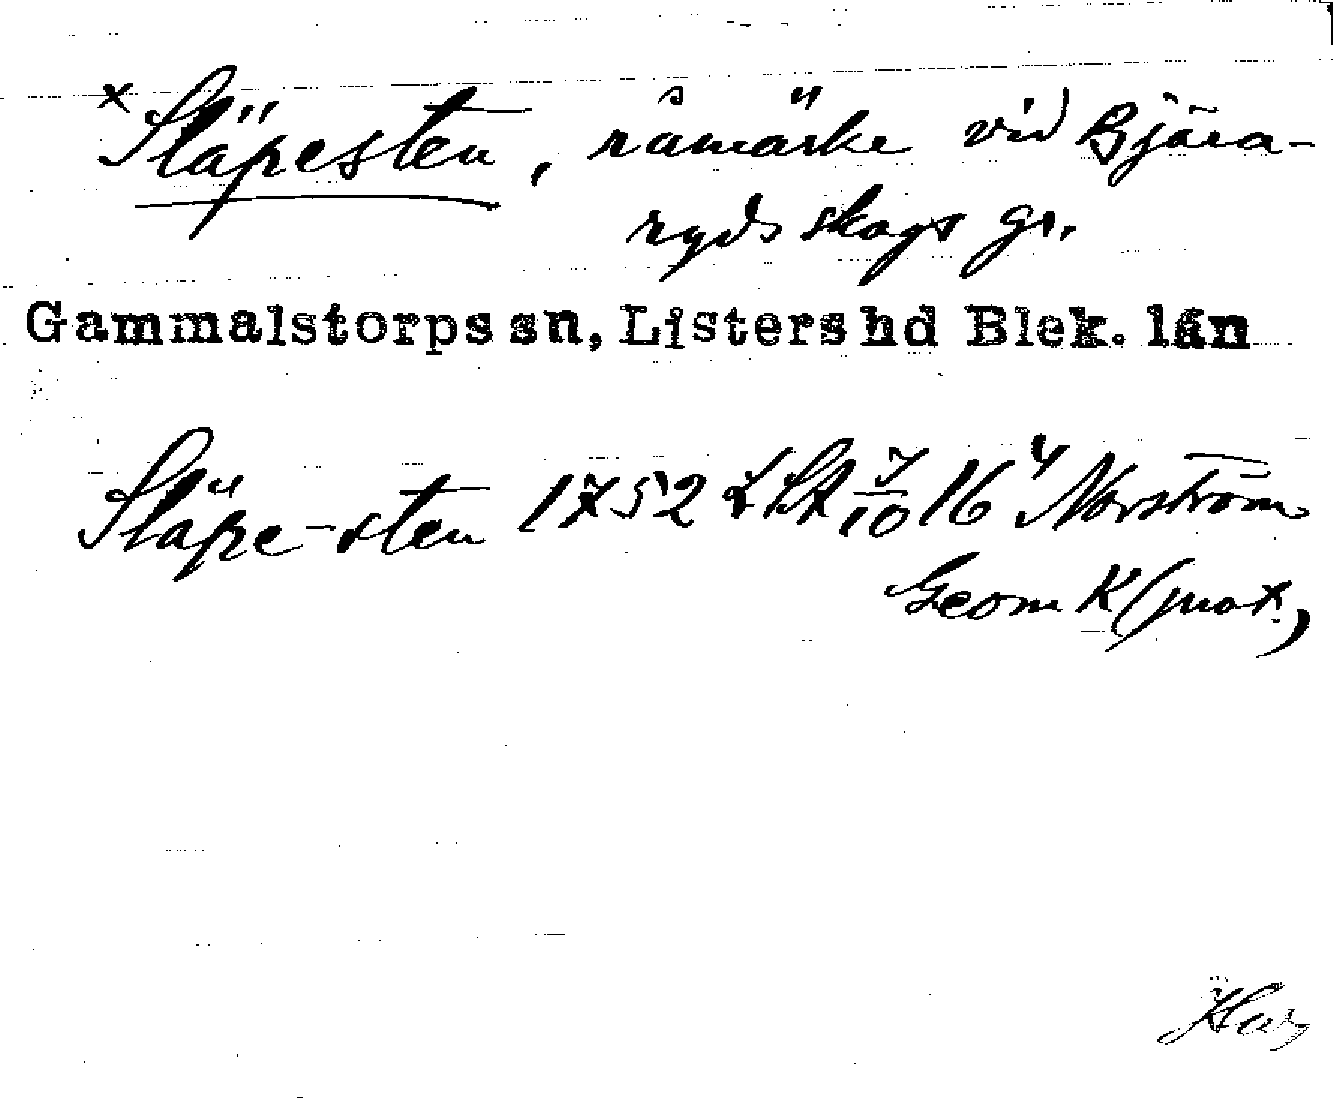 x Släpesten, råmärke vid Bjära-
ryds skogs gr.
Gammalstorps sn, Listers hd Blek. län
Släpe-sten 1752 7/10 16 Norström
Geom K (prot.)